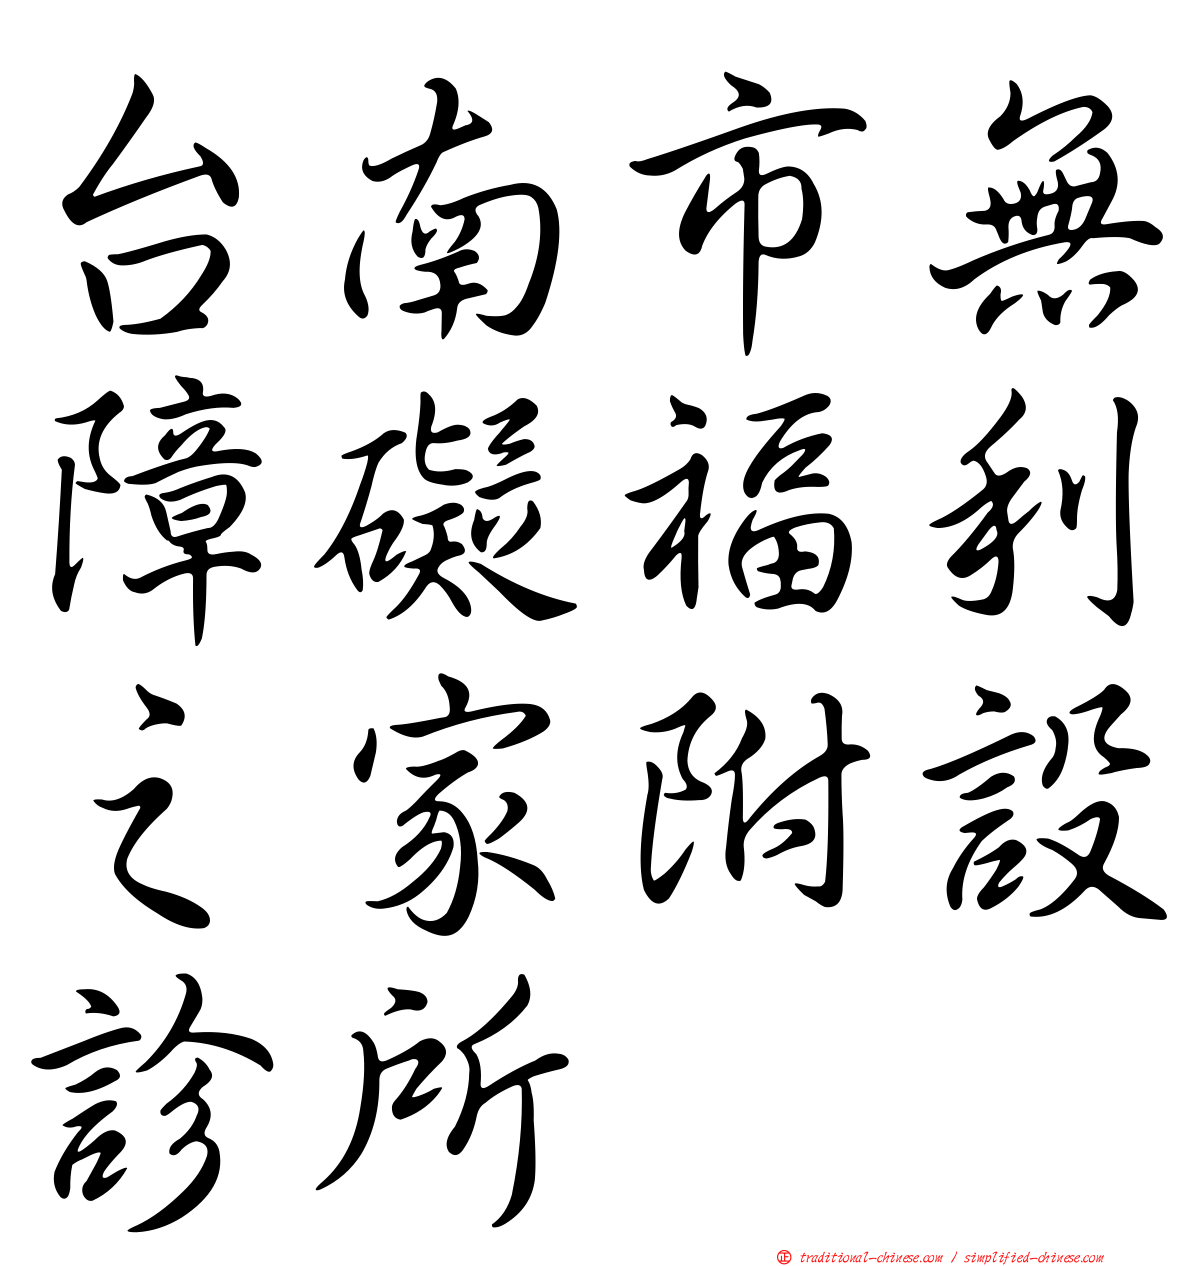 台南市無
障礙福利
之家附設
診所
正 traditional-chinese.com / simplified-chinese.com